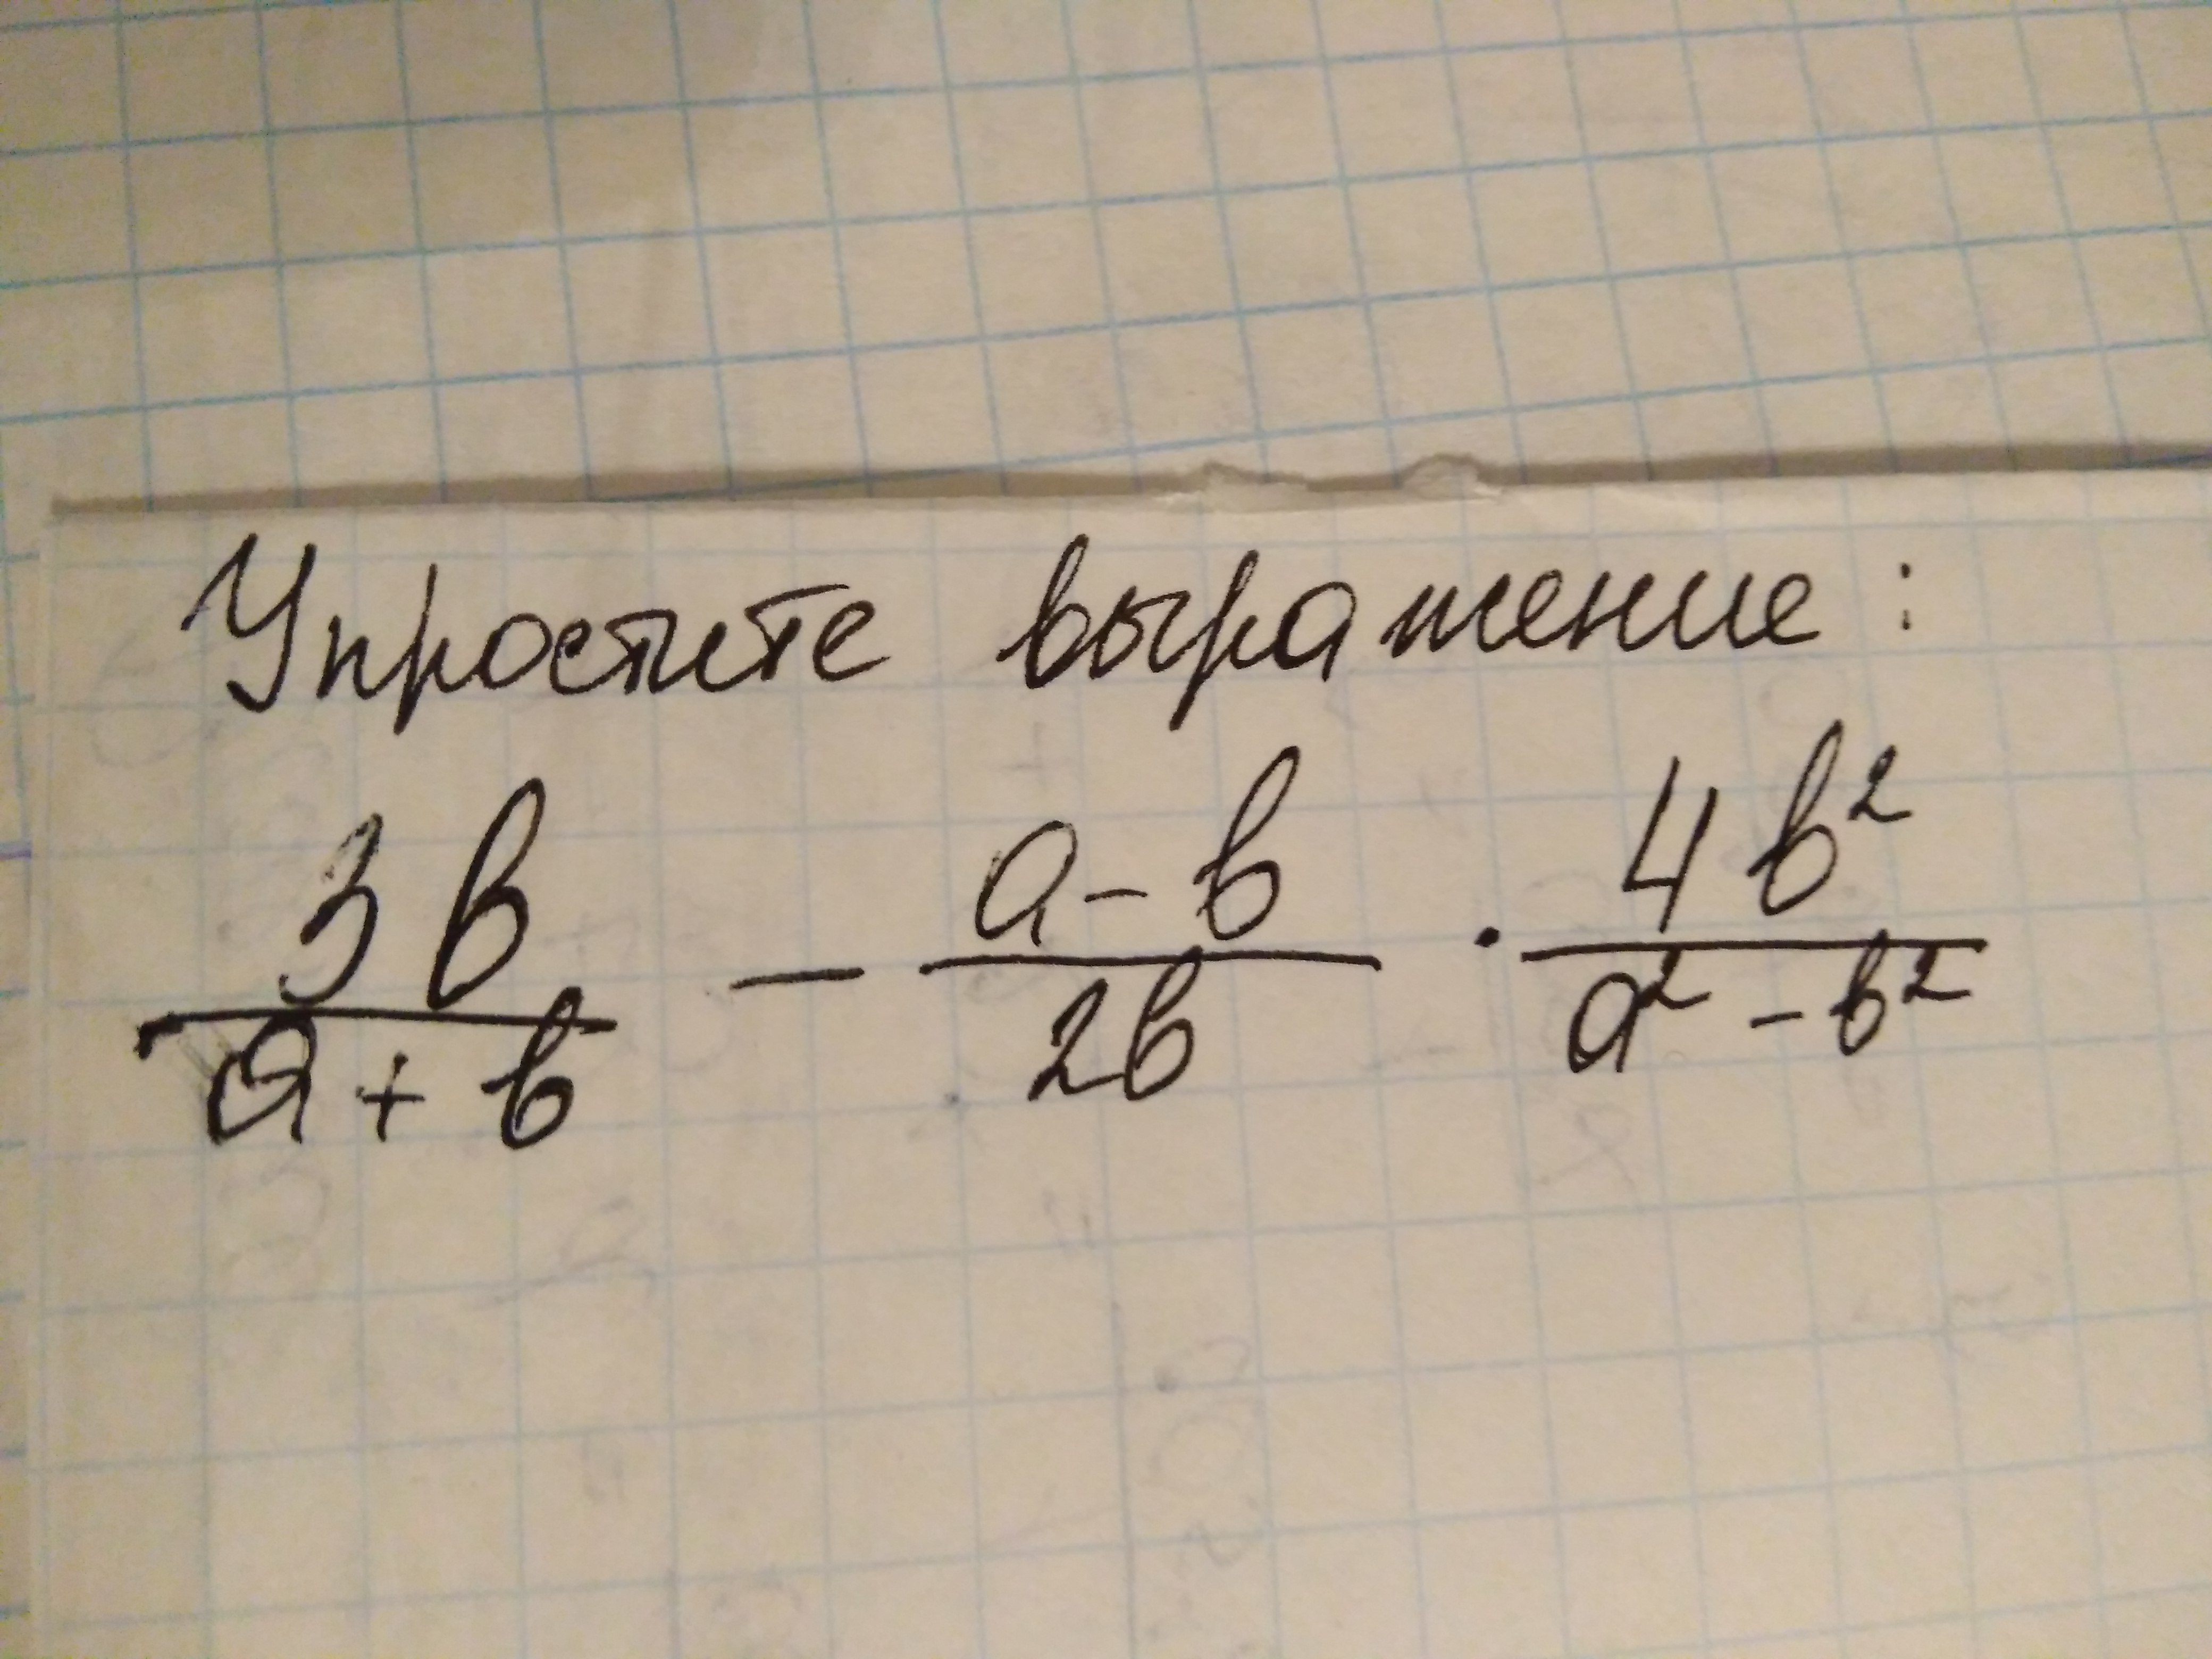 Упростите выражение:
3b/(a+b) - (a-b)/(2b) · 4b²/(a²-b²)